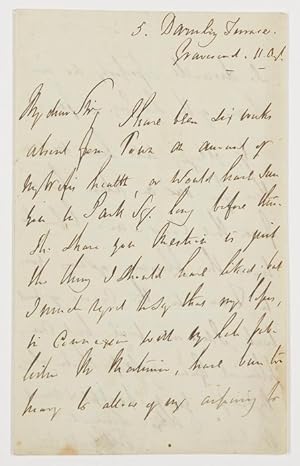 5. Darnley Terrace.
Gravesend. 11 Oct.
My dear Sir, I have been six weeks
absent from Town on account of
my Wife's health, or would have seen
you in Park Sq. long before this.
The share you mention is just
the thing I should have liked; but
I much regret to say that my losses,
in connexion with my late pub-
lisher Mr Mortimer, have been too
heavy to allow of my aspiring to